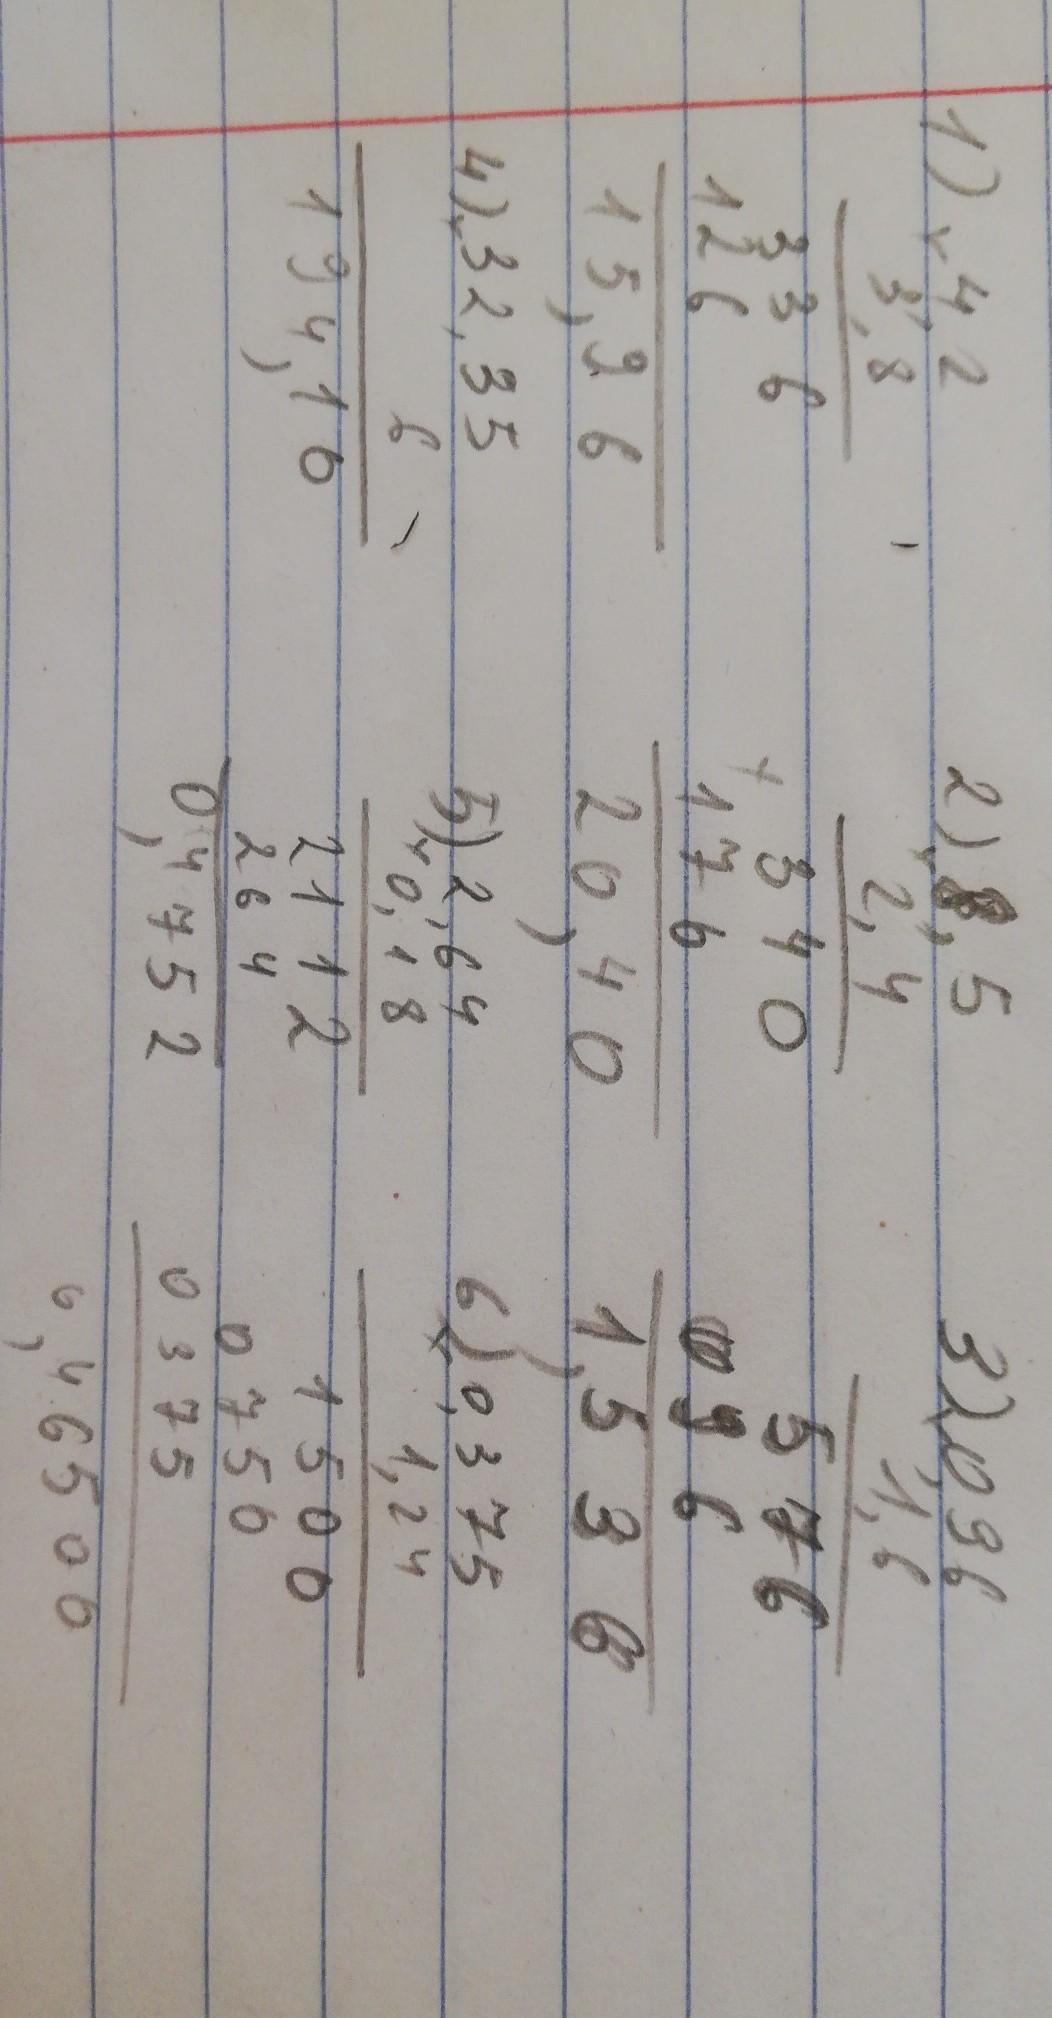 1) × 4,2
3,8
336
126
15,96
2) × 8,5
2,4
340
+ 176
20,40
3) × 0,96
1,6
576
096
1,536
4) × 32,35
6
194,10
5) 2,64
× 0,18
2112
264
0,4752
6) × 0,375
1,24
1500
0750
0375
0,46500